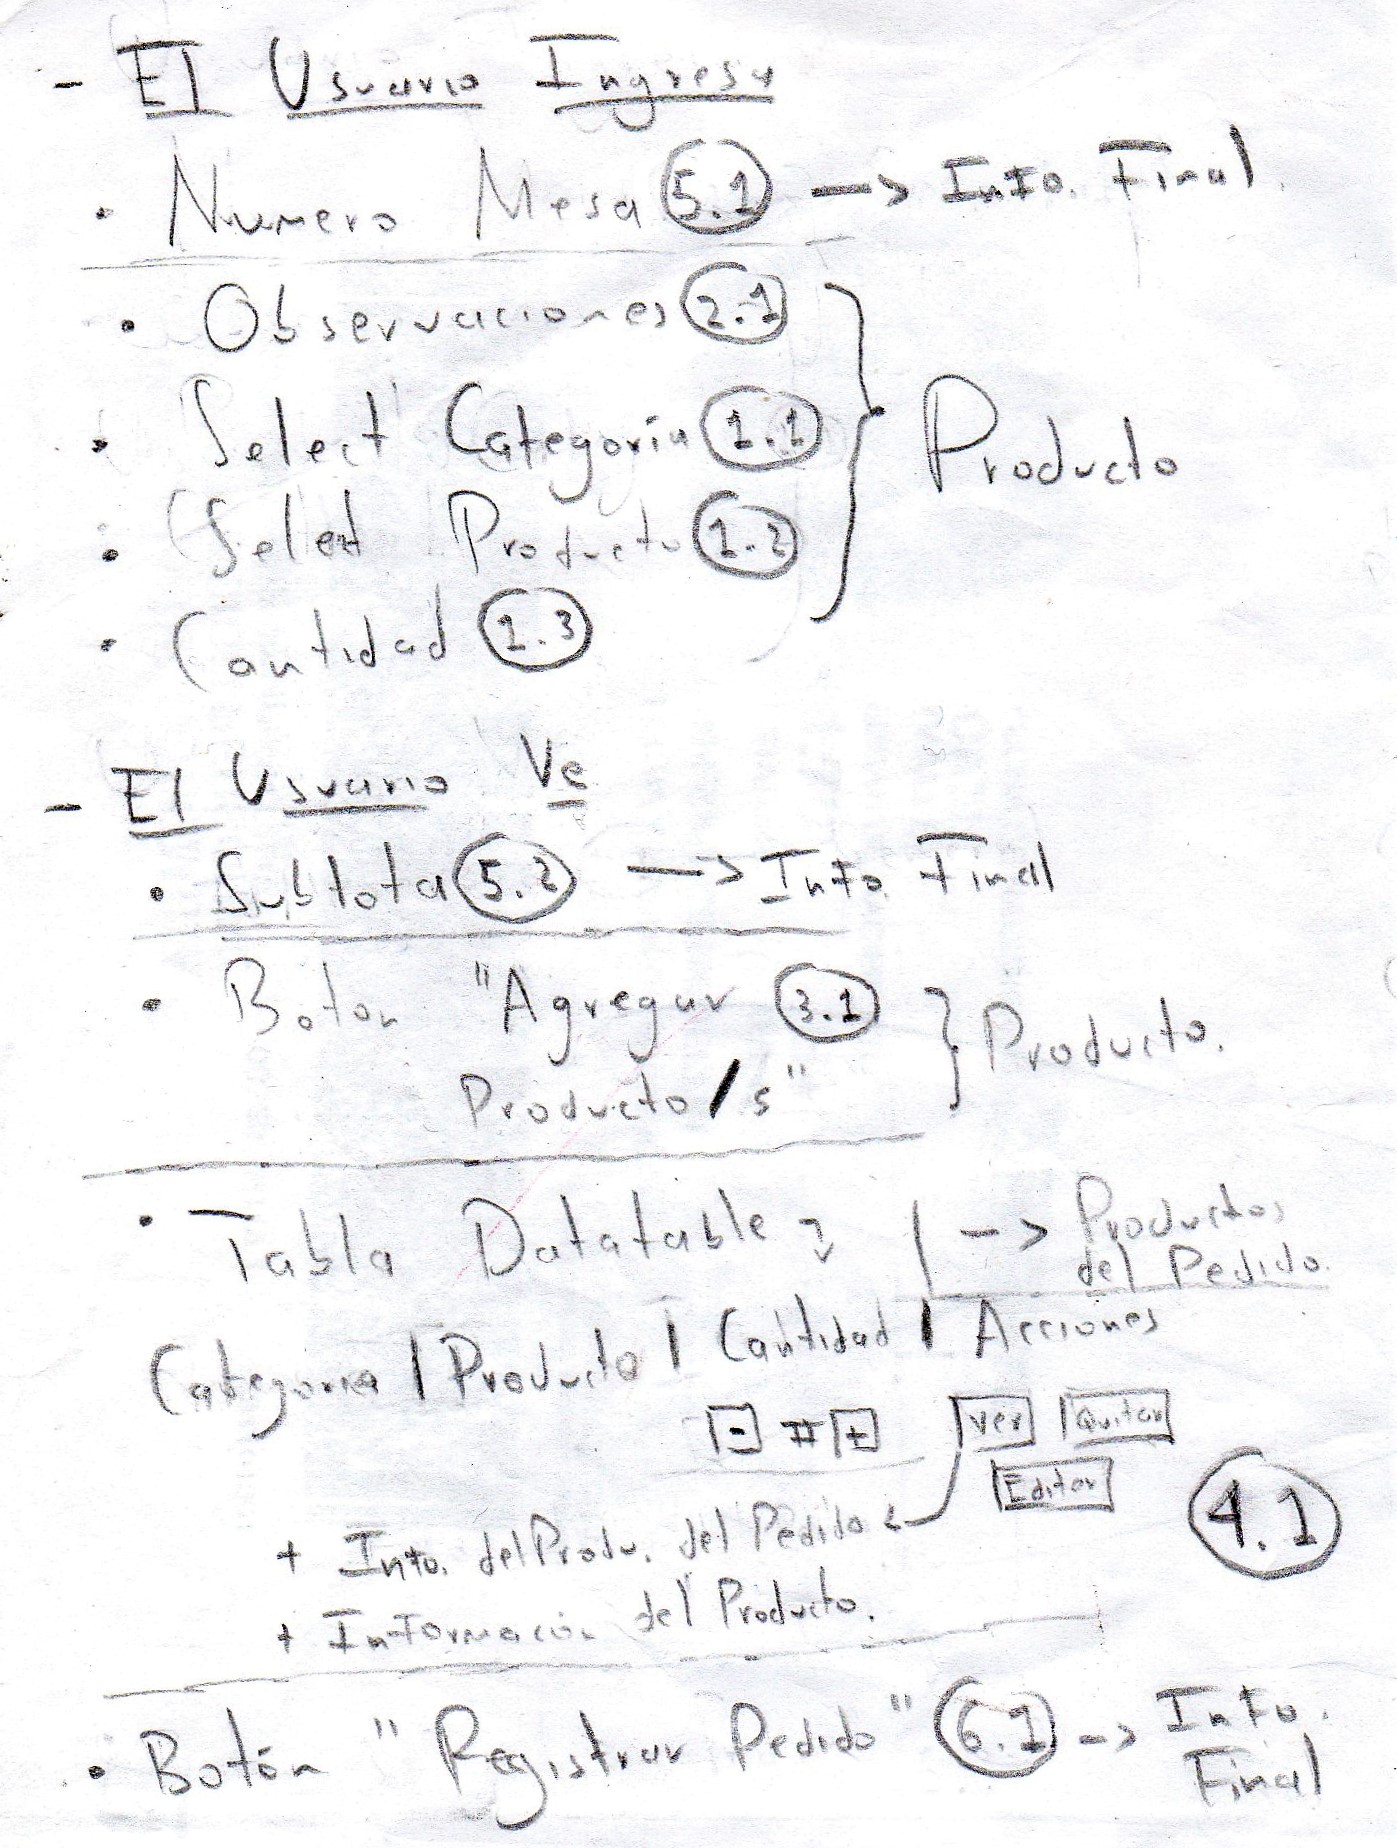 - El Usuario Ingresa
• Numero Mesa 5.1 -> Info. Final.
• Observaciones 2.1
• Select Categoría 1.1
Producto
• Select Producto 1.2
• Cantidad 1.3
- El Usuario Ve
• Subtotal 5.2 -> Info. Final
• Boton "Agregar 3.1
Producto/s"
Producto.
• Tabla Datatable -> Productos
del Pedido.
Categoria | Producto | Cantidad | Acciones
- # + Ver Quitar
Editar
4.1
+ Info. del Produ. del Pedido
+ Información del Producto.
• Botón "Registrar Pedido" 6.1 -> Info.
Final